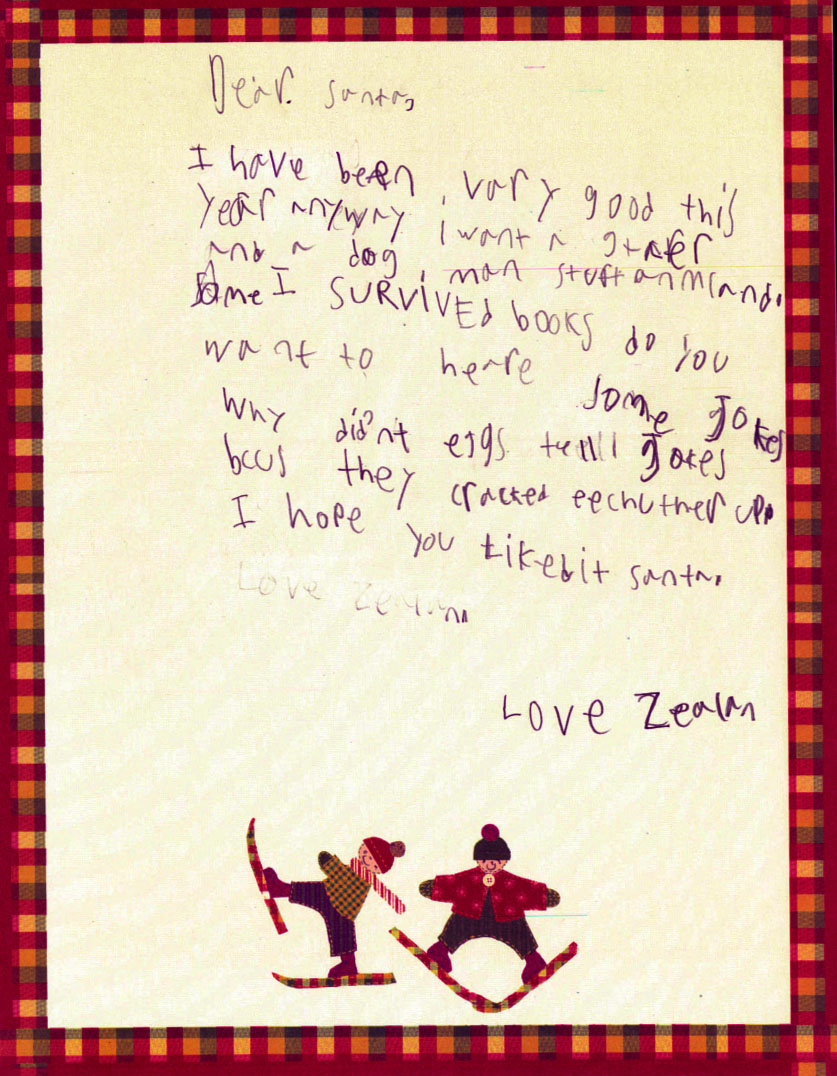 Dear. santa,
I have been vary good this
year anyway i want a
and a dog, man stuff
some I SURVIVEd books do you
want to heare some Jokes
Why did'nt eggs Jokes
bcus they cracked eechuther up.
I hope you Like it santa.
Love Zealan.
Love Zealan